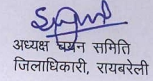 अध्यक्ष चयन समिति
जिलाधिकारी, रायबरेली